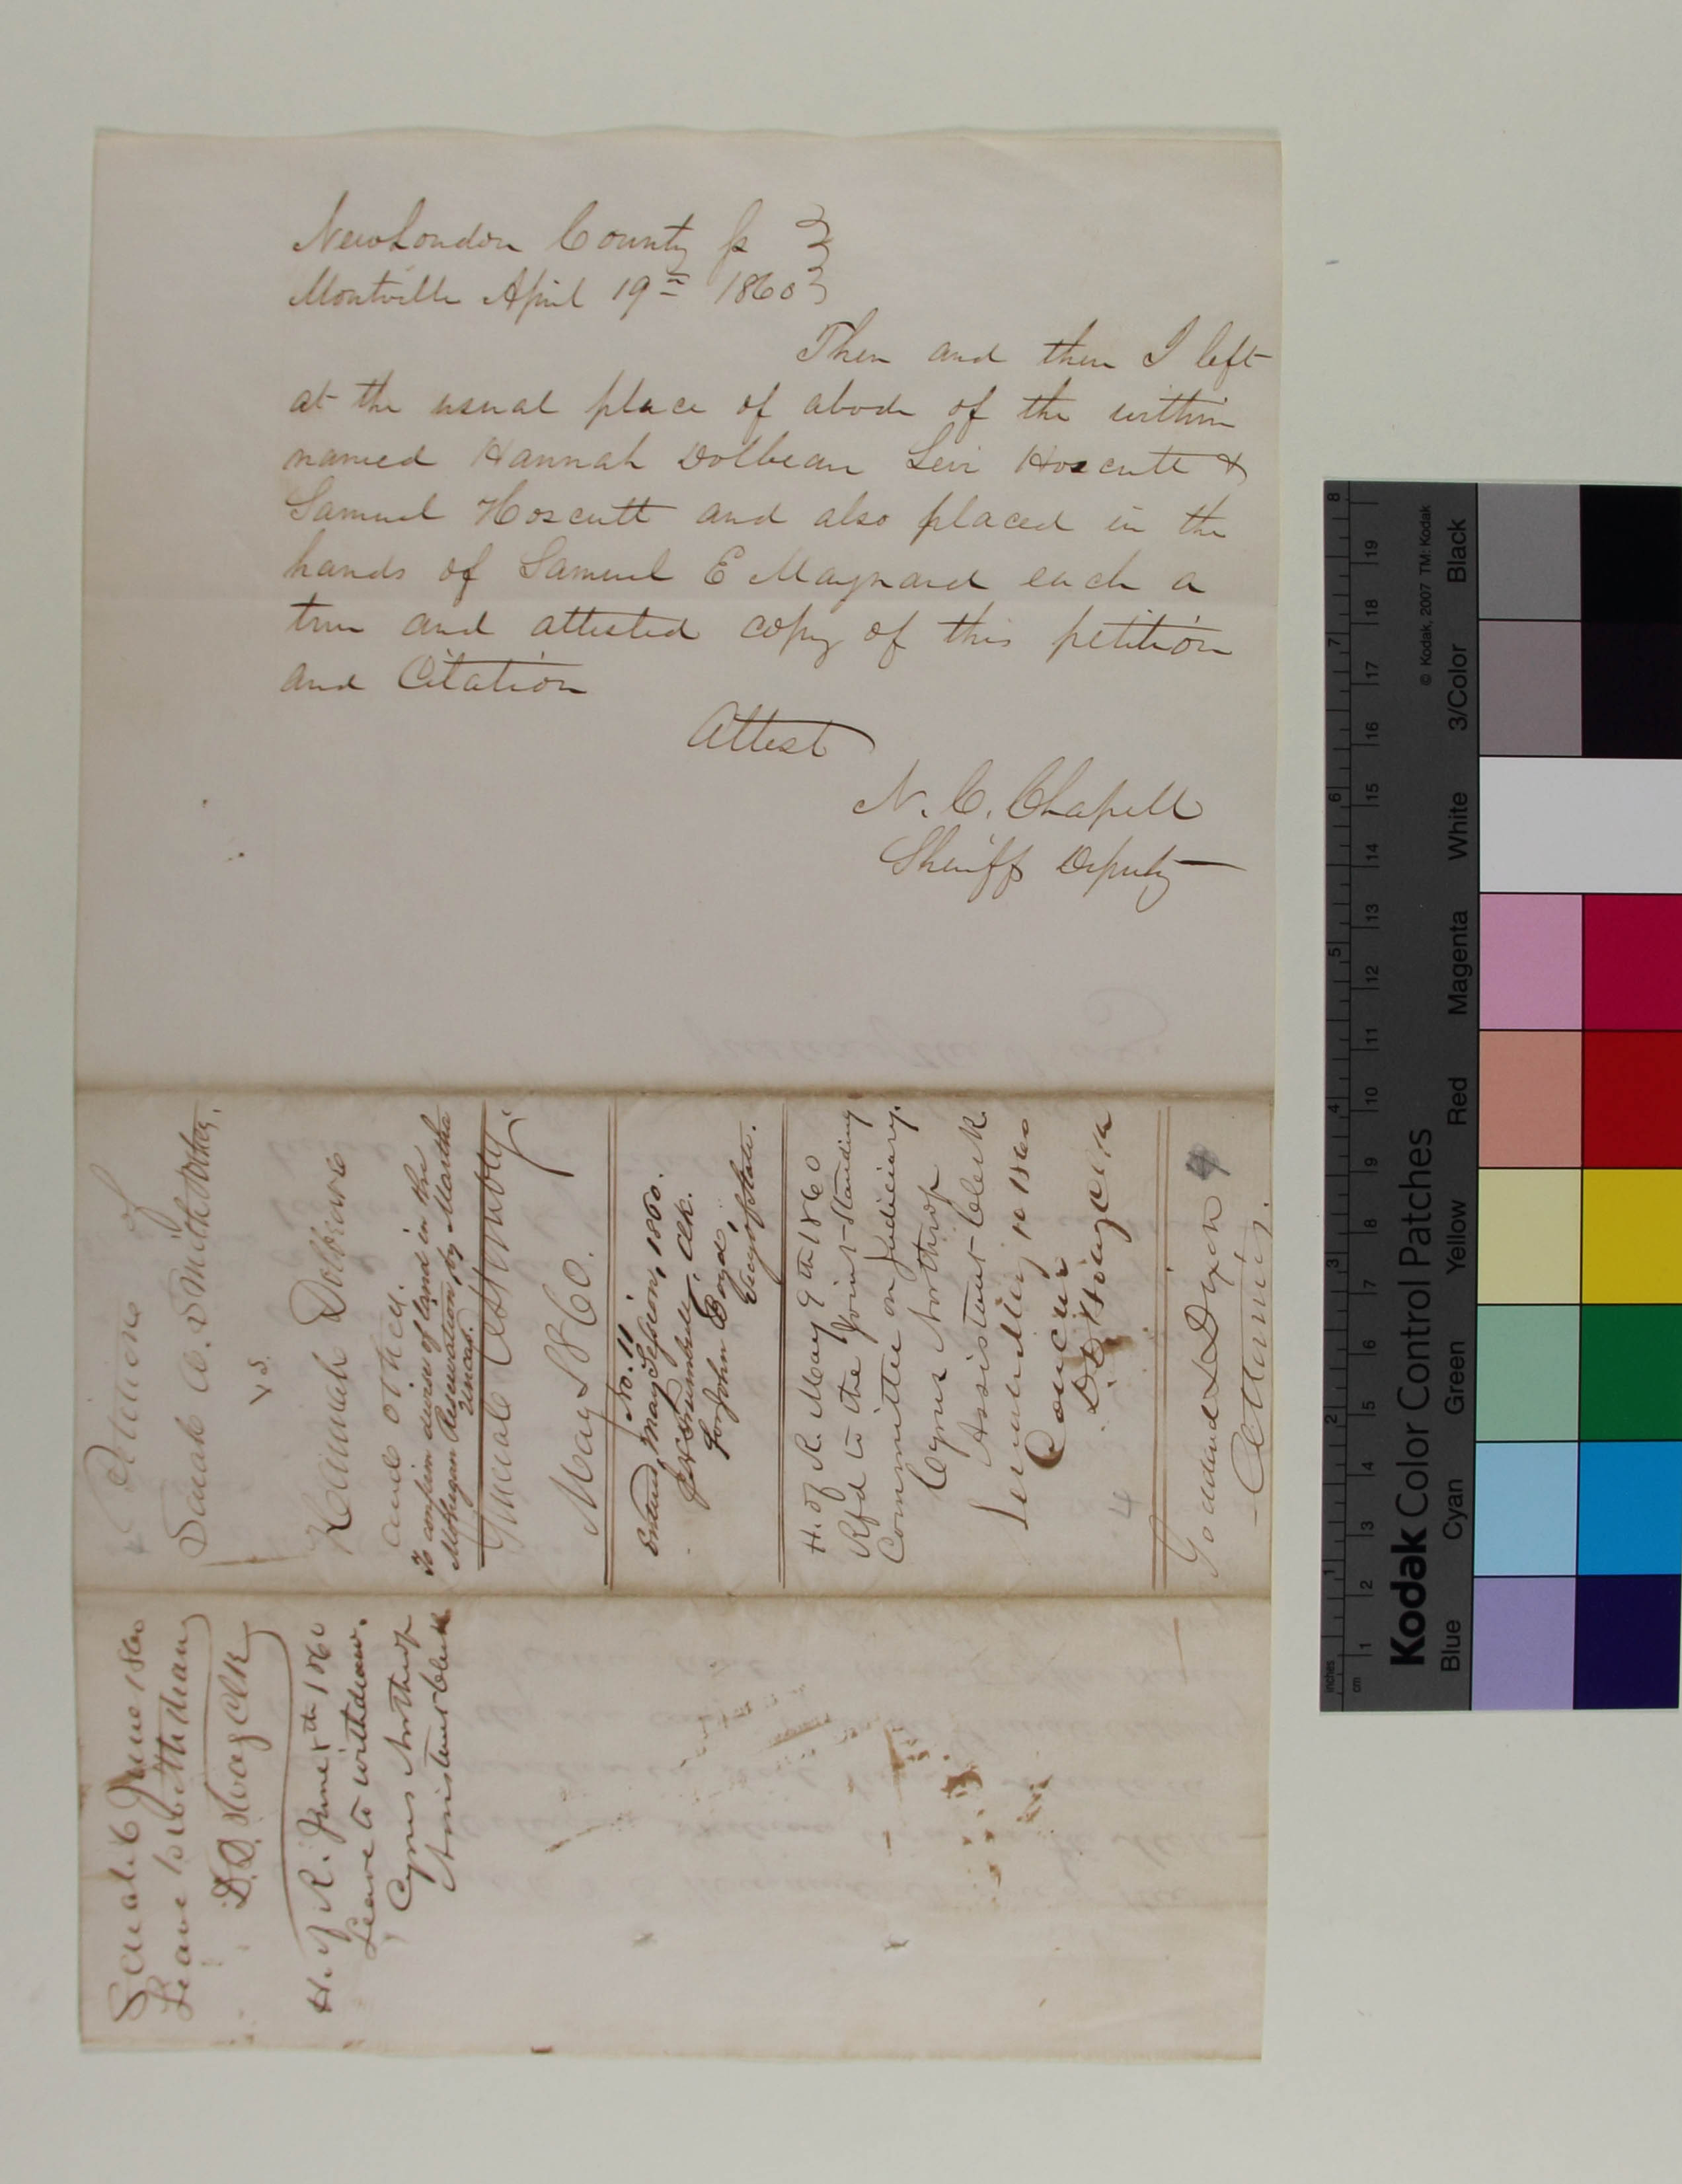 New London County ss
Montville April 19th 1860
Then and there I left
at the usual place of abode of the within
named Hannah Dolbeare Levi Hoscutt &
Samuel Hoscutt and also placed in the
hands of Samuel E Maynard each a
true and attested copy of this petition
and Citation
Attest
N. C. Chapell
Sheriff Deputy
Petition of
Sarah A. Smith & other,
vs.
Hannah Dolbeare
and other.
To confirm devise of land in the
Mohegan Reservation, by Martha
Uncas.
General Assembly
May 1860.
No. 11
Entered, May Session, 1860.
J. H. Trumbull, Clk.
for John Boyd,
Secy of State.
H. of R. May 9th 1860
Rfd to the Joint Standing
Committee on Judiciary.
Cyrus Northrop
Assistant Clerk
Senate May 10 1860
Concur
D D Hoag Clk
4
Goddard & Dixon
Attorneys.
Senate 6 June 1860
Leave to withdraw
D. D. Hoag Clk
H. of R. June 1860
Leave to withdraw.
Cyrus Northrop
Assistant Clerk
inches
cm
1 2 3 4 5 6 7 8
1 2 3 4 5 6 7 8 9 10 11 12 13 14 15 16 17 18 19
Kodak Color Control Patches
© Kodak, 2007 TM: Kodak
Blue Cyan Green Yellow Red Magenta White 3/Color Black